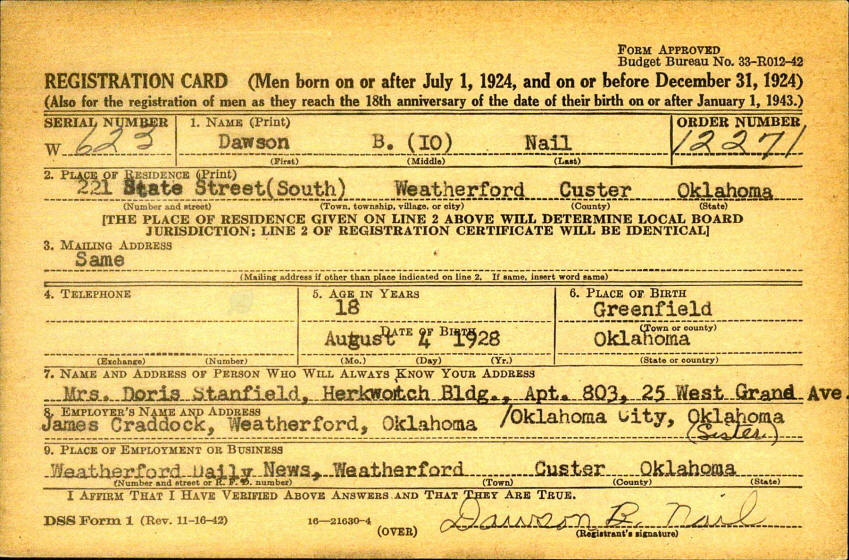 FORM APPROVED
Budget Bureau No. 33-R012-42
REGISTRATION CARD (Men born on or after July 1, 1924, and on or before December 31, 1924)
(Also for the registration of men as they reach the 18th anniversary of the date of their birth on or after January 1, 1943.)
SERIAL NUMBER 1. NAME (Print) ORDER NUMBER
W 623 Dawson B. (IO) Nail 12271
(First) (Middle) (Last)
2. PLACE OF RESIDENCE (Print)
221 State Street(South) Weatherford Custer Oklahoma
(Number and street) (Town, township, village, or city) (County) (State)
[THE PLACE OF RESIDENCE GIVEN ON LINE 2 ABOVE WILL DETERMINE LOCAL BOARD
JURISDICTION; LINE 2 OF REGISTRATION CERTIFICATE WILL BE IDENTICAL]
3. MAILING ADDRESS
Same
(Mailing address if other than place indicated on line 2. If same, insert word same)
4. TELEPHONE 5. AGE IN YEARS 6. PLACE OF BIRTH
18 Greenfield
DATE OF BIRTH (Town or county)
August 4 1928 Oklahoma
(Exchange) (Number) (Mo.) (Day) (Yr.) (State or country)
7. NAME AND ADDRESS OF PERSON WHO WILL ALWAYS KNOW YOUR ADDRESS
Mrs. Doris Stanfield, Bldg., Apt. 803, 25 West Grand Ave.
8. EMPLOYER'S NAME AND ADDRESS
James Craddock, Weatherford, Oklahoma /Oklahoma City, Oklahoma
(Sister)
9. PLACE OF EMPLOYMENT OR BUSINESS
Weatherford Daily News, Weatherford Custer Oklahoma
(Number and street or R. F. D. number) (Town) (County) (State)
I AFFIRM THAT I HAVE VERIFIED ABOVE ANSWERS AND THAT THEY ARE TRUE.
DSS Form 1 (Rev. 11-16-42) 16—21630-4 Dawson B. Nail
(OVER) (Registrant's signature)